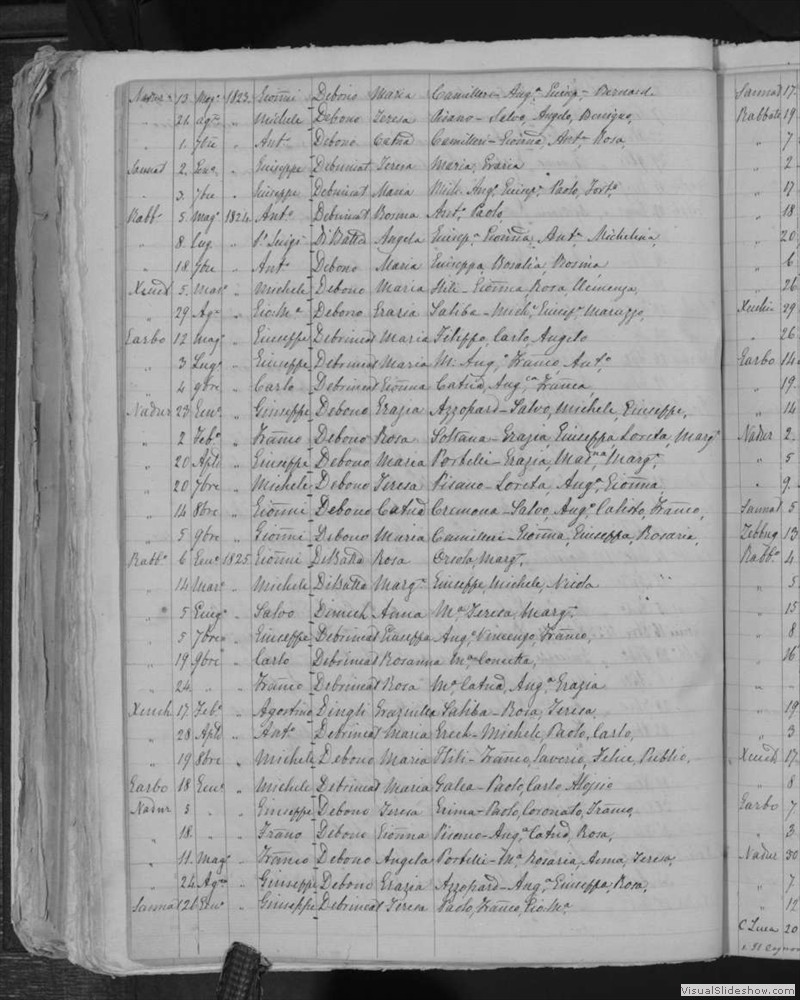 Nadur 13 Mag. 1823 Gionni Debono Maria Camilleri - Ang.a Giusp.e Bernard
" 21 Ag.to " Michele Debono Teresa Pisano - Salvo, Angelo, Benigno,
" 1 7bre " Ant.o Debono Catnd Camilleri - Gionna, Ant.a Rosa,
Sannat 2 Gen. " Giuseppe Debrincat Teresa Maria, Grazia
" 3 7bre " Giuseppe Debrincat Maria Mich. Ang.o Giusp.e Paolo, Fort.o
Rabb.o 5 Mag.o 1824 Ant.o Debrincat Rosina Ant.o Paolo
" 8 Lug. " Luigi DiBatta Angela Giusp.a Gionna, Ant.a Michelina,
" 18 7bre " Ant.o Debono Maria Giuseppa, Rosalia, Rosina
Xeuch 5 Mar. " Michele Debono Maria Hili - Gionna Rosa, Clemenza,
" 29 Ag.o " Gio:M.a Debono Grazia Saliba - Mich.e Giusp.e
Garbo 12 Mag.o " Giuseppe Debrincat Maria Filippo, Carlo, Angelo
" 3 Lug.o " Giuseppe Debrincat Maria M. Ang.o Franco, Ant.o
" 4 9bre " Carlo Debrincat Gionna Catnd, Ang.a Franca
Nadur 23 Gen. " Giuseppe Debono Grazia Azzopard - Salvo, Michele, Giuseppe,
" 2 Feb.o " Franco Debono Rosa Soltana - Grazia Giuseppa Loreta, Marg.a
" 20 Aple " Giuseppe Debono Maria Portelli - Grazia, Marg.a
" 20 7bre " Michele Debono Teresa Pisano - Loreta, Ang.a Gionna
" 14 8bre " Gionni Debono Catnd Cremona - Salvo, Ang.o Calisto, Franco,
" 5 9bre " Gionni Debono Maria Camilleri - Gionna, Giuseppa, Rosaria,
Rabb.o 6 Gen. 1825 Gionni DiBatta Rosa Orsola, Marg.a
" 14 Mar. " Michele DiBatta Marg.a Giuseppe, Michele,
" 5 Giug.o " Salvo Dimech Anna M.a Teresa, Marg.a
" 5 7bre " Giuseppe Debrincat Giuseppa Ang.o Franco,
" 19 9bre " Carlo Debrincat Rosanna M.a Concetta,
" 24 " " Franco Debrincat Rosa M.a Catnd, Ang.a Grazia
Xeuch 17 Feb.o " Agostino Dingli Graziulla Saliba - Rosa, Teresa,
" 28 Aple " Ant.o Debrincat Maria Grech - Michele, Paolo, Carlo,
" 19 8bre " Michele Debono Maria Hili - Franco, Saverio, Felice, Publio,
Garbo 18 Gen. " Michele Debrincat Maria Galea - Paolo, Carlo, Aloisio
Nadur 3 " " Giuseppe Debono Teresa Grima - Paolo, Coronato, Franco,
" 18 " " Franco Debono Gionna Pisano - Ang.a Catnd, Rosa,
" 11 Mag.o " Franco Debono Angela Portelli - M.a Rosaria, Anna, Teresa,
" 24 Ag.to " Giuseppe Debono Grazia Azzopard - Ang.a Giuseppa, Rosa,
Sannat 26 Gen. " Giuseppe Debrincat Teresa Paolo, Franco, Gio:M.a
Sannat 17
Rabbato 19
" 7
" 2
" 17
" 18
" 20
" 6
" 26
Xeuch 29
" 26
Garbo 14
" 19
" 14
Nadur 2
" 5
" 9
Sannat 5
Zebbug 13
Rabb.o 4
" 5
" 15
" 8
" 16
" "
" 19
" 3
Xeuch 17
" 8
Garbo 7
" 3
Nadur 30
" 7
" 12
C Luca 20
VisualSlideshow.com